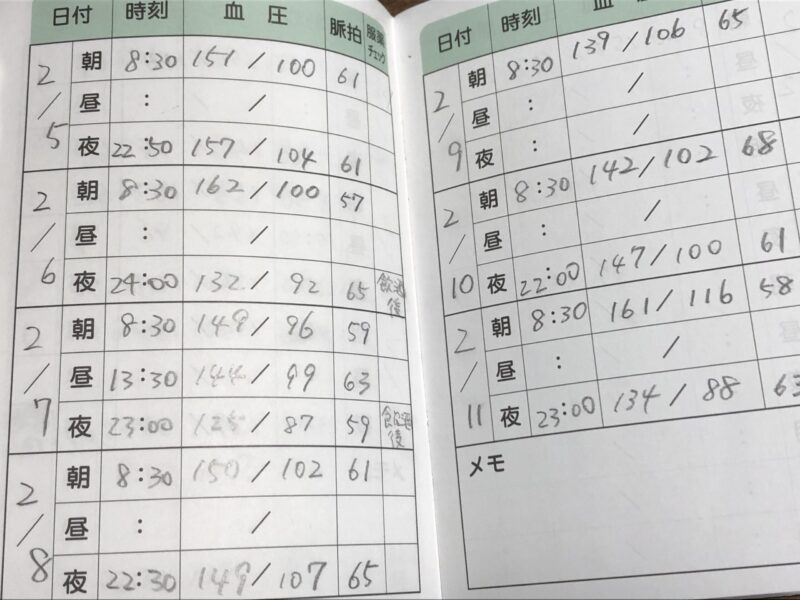 日付 時刻 血圧 脈拍 服薬チェック
2/5 朝 8:30 151/100 61
昼 : /
夜 22:50 157/104 61
2/6 朝 8:30 162/100 57
昼 : /
夜 24:00 132/92 65 飲酒後
2/7 朝 8:30 149/96 59
昼 13:30 144/99 63
夜 23:00 125/87 59 飲酒後
2/8 朝 8:30 150/102 61
昼 : /
夜 22:30 149/107 65
日付 時刻
2/9 朝 8:30 139/106 65
昼 : /
夜 : /
2/10 朝 8:30 142/102 68
昼 : /
夜 22:00 147/100 61
2/11 朝 8:30 161/116 58
昼 : /
夜 23:00 134/88 63
メモ